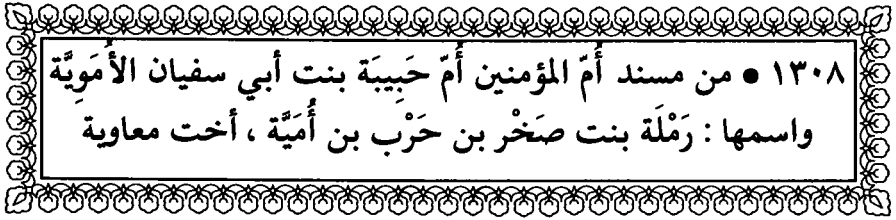 ١٣٠٨ ● من مسند أُمّ المؤمنين أُمّ حَبِيبَة بنت أبي سفيان الأُمَوِيَّة
واسمها : رَمْلَة بنت صَخْر بن حَرْب بن أُمَيَّة ، أخت معاوية